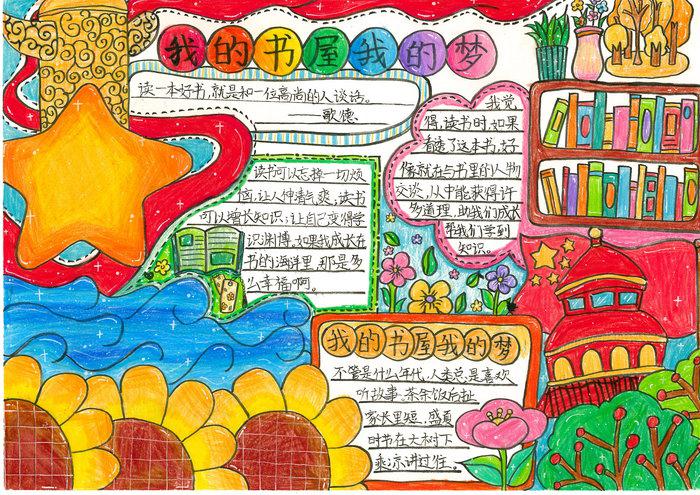 我的书屋我的梦
读一本好书,就是和一位高尚的人谈话。
——歌德
我觉
得,读书时,如果
看透了这本书,好
像就在与书里的人物
交谈,从中能获得许
多道理,助我们成长
帮我们学到
知识。
读书可以忘掉一切烦
恼,让人神清气爽,读书
可以增长知识;让自己变得学
识渊博,如果我成长在
书的海洋里,那是多
么幸福啊。
我的书屋我的梦
不管是什么年代,人类总是喜欢
听故事。茶余饭后扯
家长里短,盛夏
时节在大树下
乘凉讲过往。